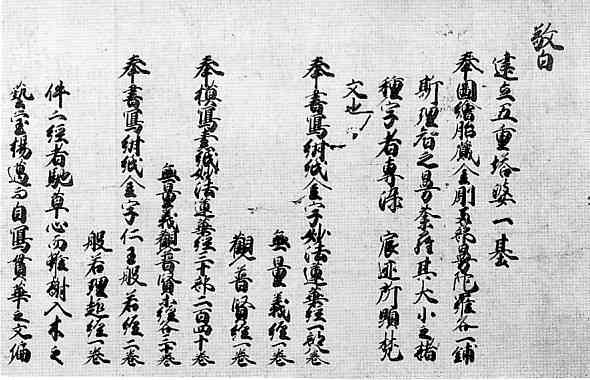 敬白
建立五重塔婆一基
奉圖繪胎藏金剛両部曼陀羅各一鋪
斯理智之曼荼羅其大小之指
種字者専添 宸迹所顕梵
文也
奉書寫紺紙金字妙法蓮華經一部八巻
無量義經一巻
觀普賢經一巻
奉摸寫素紙妙法蓮華經三十部二百四十巻
無量義觀普賢經各三十巻
奉書寫紺紙金字仁王般若經二巻
般若理趣經一巻
件二經者馳草心而雖謝入木之
藝自寫貫華之文